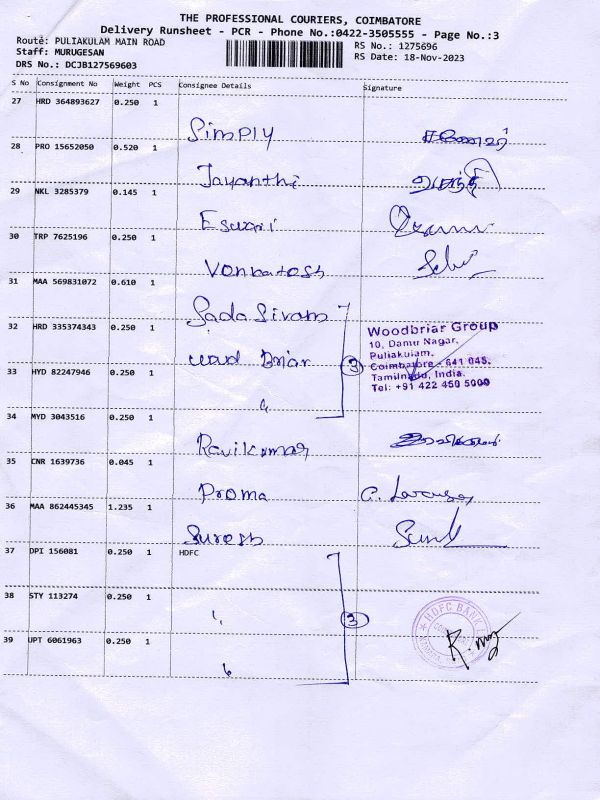 THE PROFESSIONAL COURIERS, COIMBATORE
Delivery Runsheet - PCR - Phone No.:0422-3505555 - Page No.:3
Route: PULIAKULAM MAIN ROAD
RS No.: 1275696
Staff: MURUGESAN
RS Date: 18-Nov-2023
DRS No.: DCJB127569603
S No Consignment No Weight PCS Consignee Details Signature
27 HRD 364893627 0.250 1
Simply
28 PRO 15652050 0.520 1
Jayanthi
29 NKL 3285379 0.145 1
Eswari
30 TRP 7625196 0.250 1
Venkatesh
31 MAA 569831072 0.610 1
Sada Sivam
32 HRD 335374343 0.250 1
Woodbriar Group
10, Damu Nagar,
Puliakulam,
Coimbatore - 641 045.
Tamilnadu, India.
Tel: +91 422 450 5000
Wood Briar
3
33 HYD 82247946 0.250 1
34 MYD 3043516 0.250 1
Ravikumar
35 CNR 1639736 0.045 1
Prema
36 MAA 862445345 1.235 1
Suresh
37 DPI 156081 0.250 1 HDFC
38 STY 113274 0.250 1
3
HDFC BANK
39 UPT 6061963 0.250 1